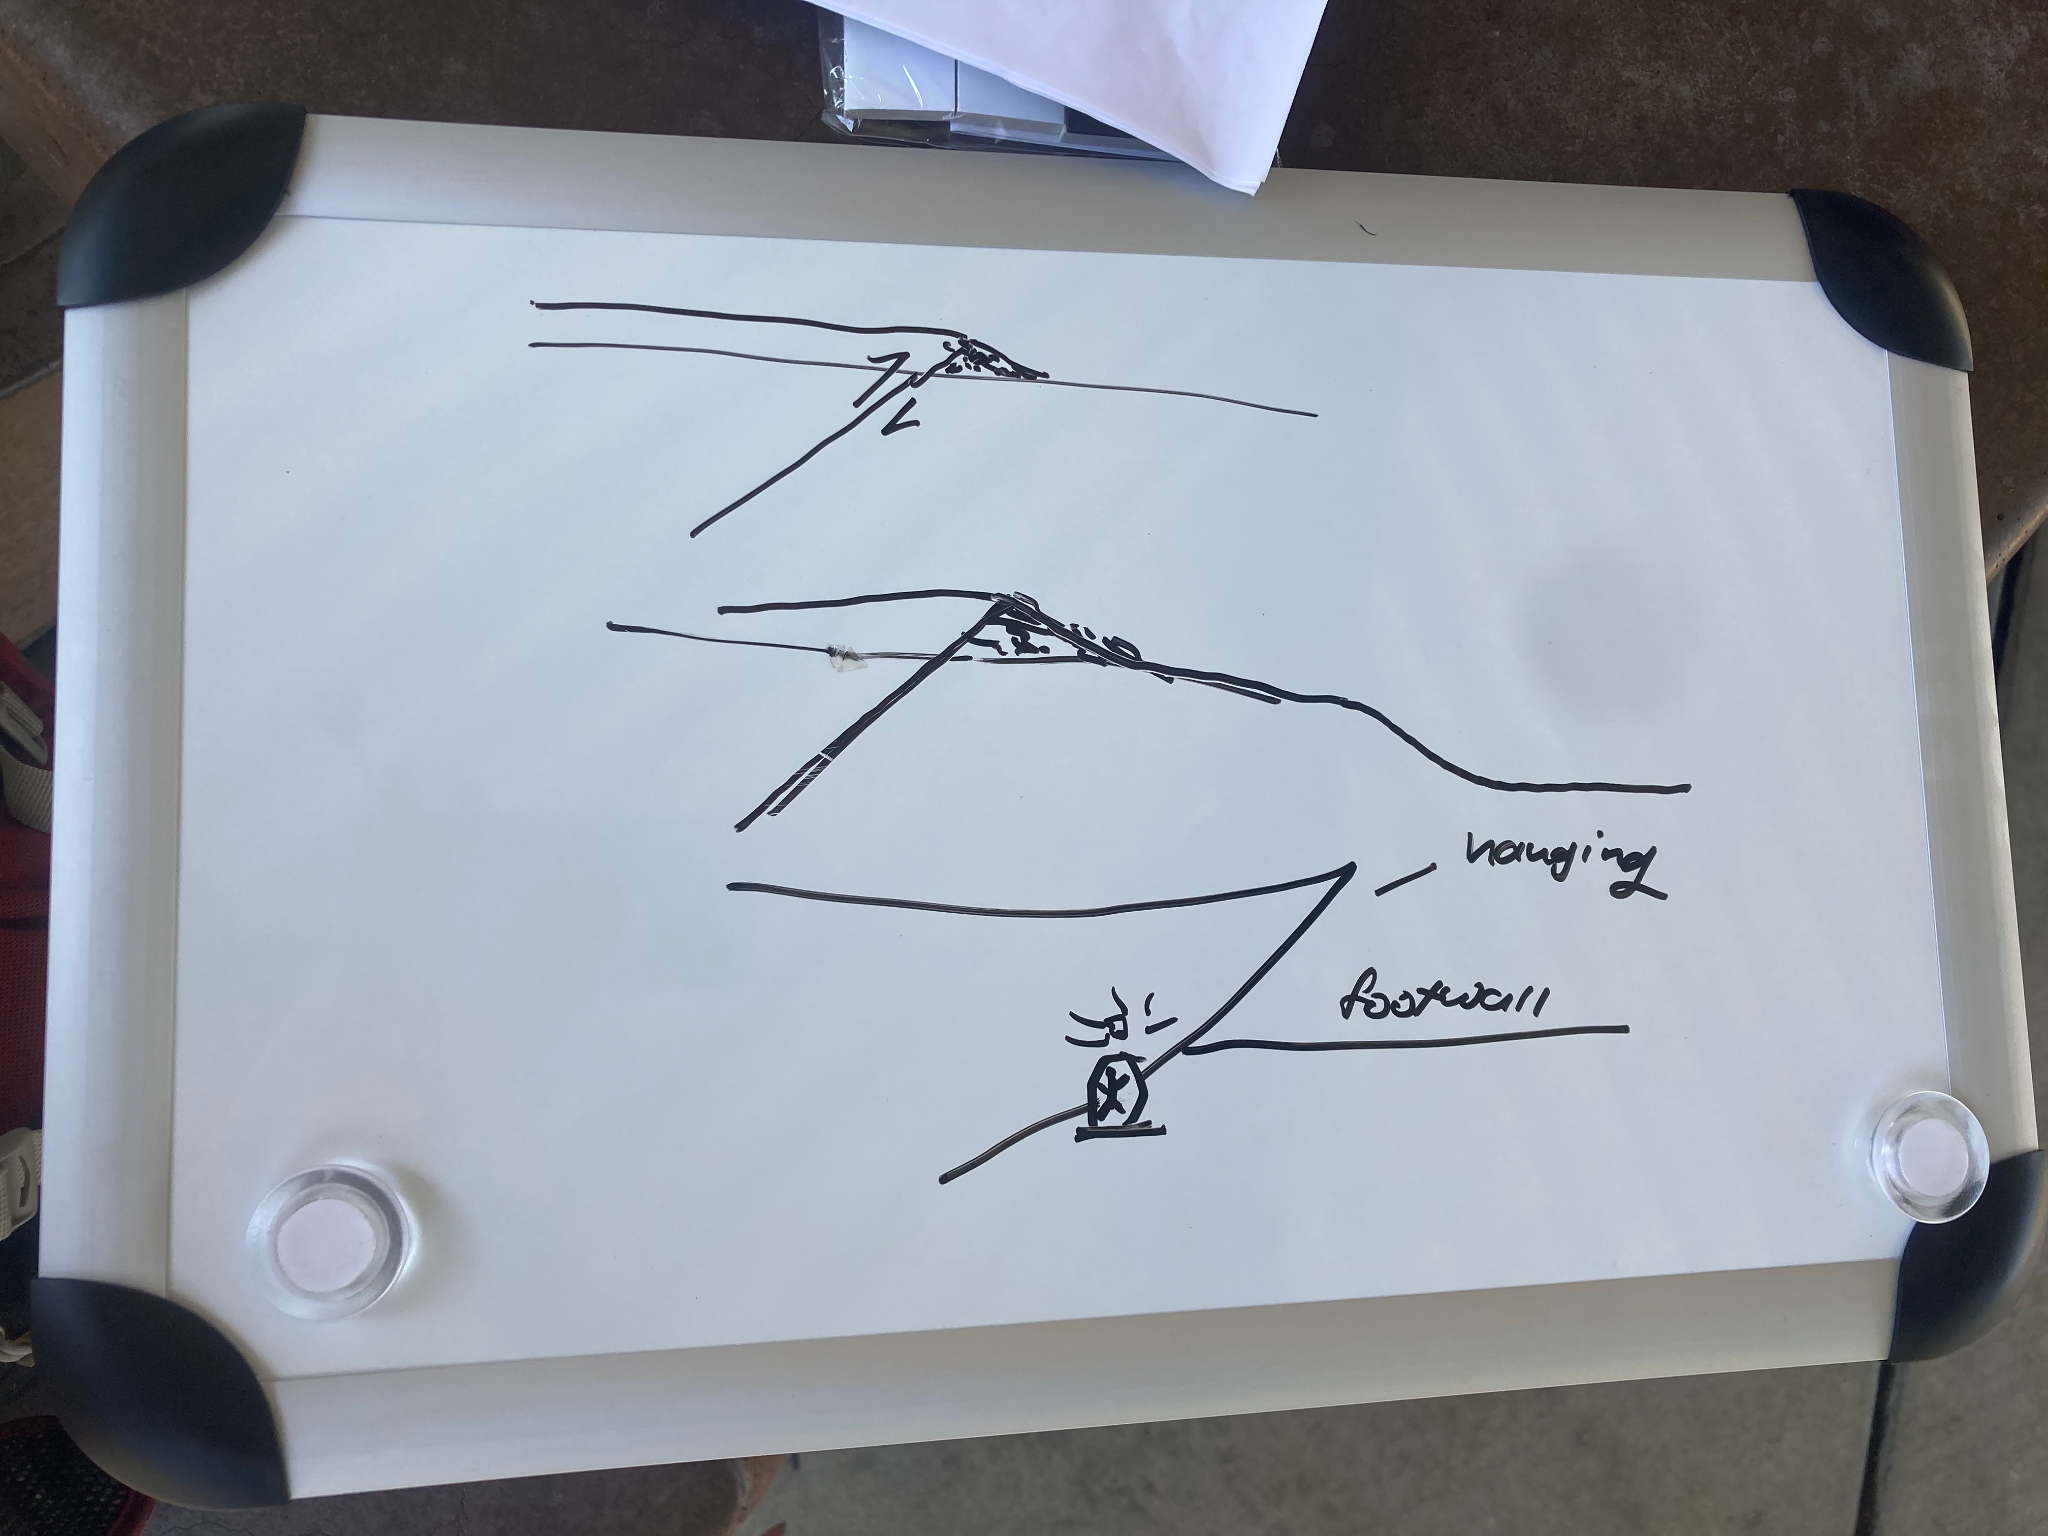 hanging
footwall